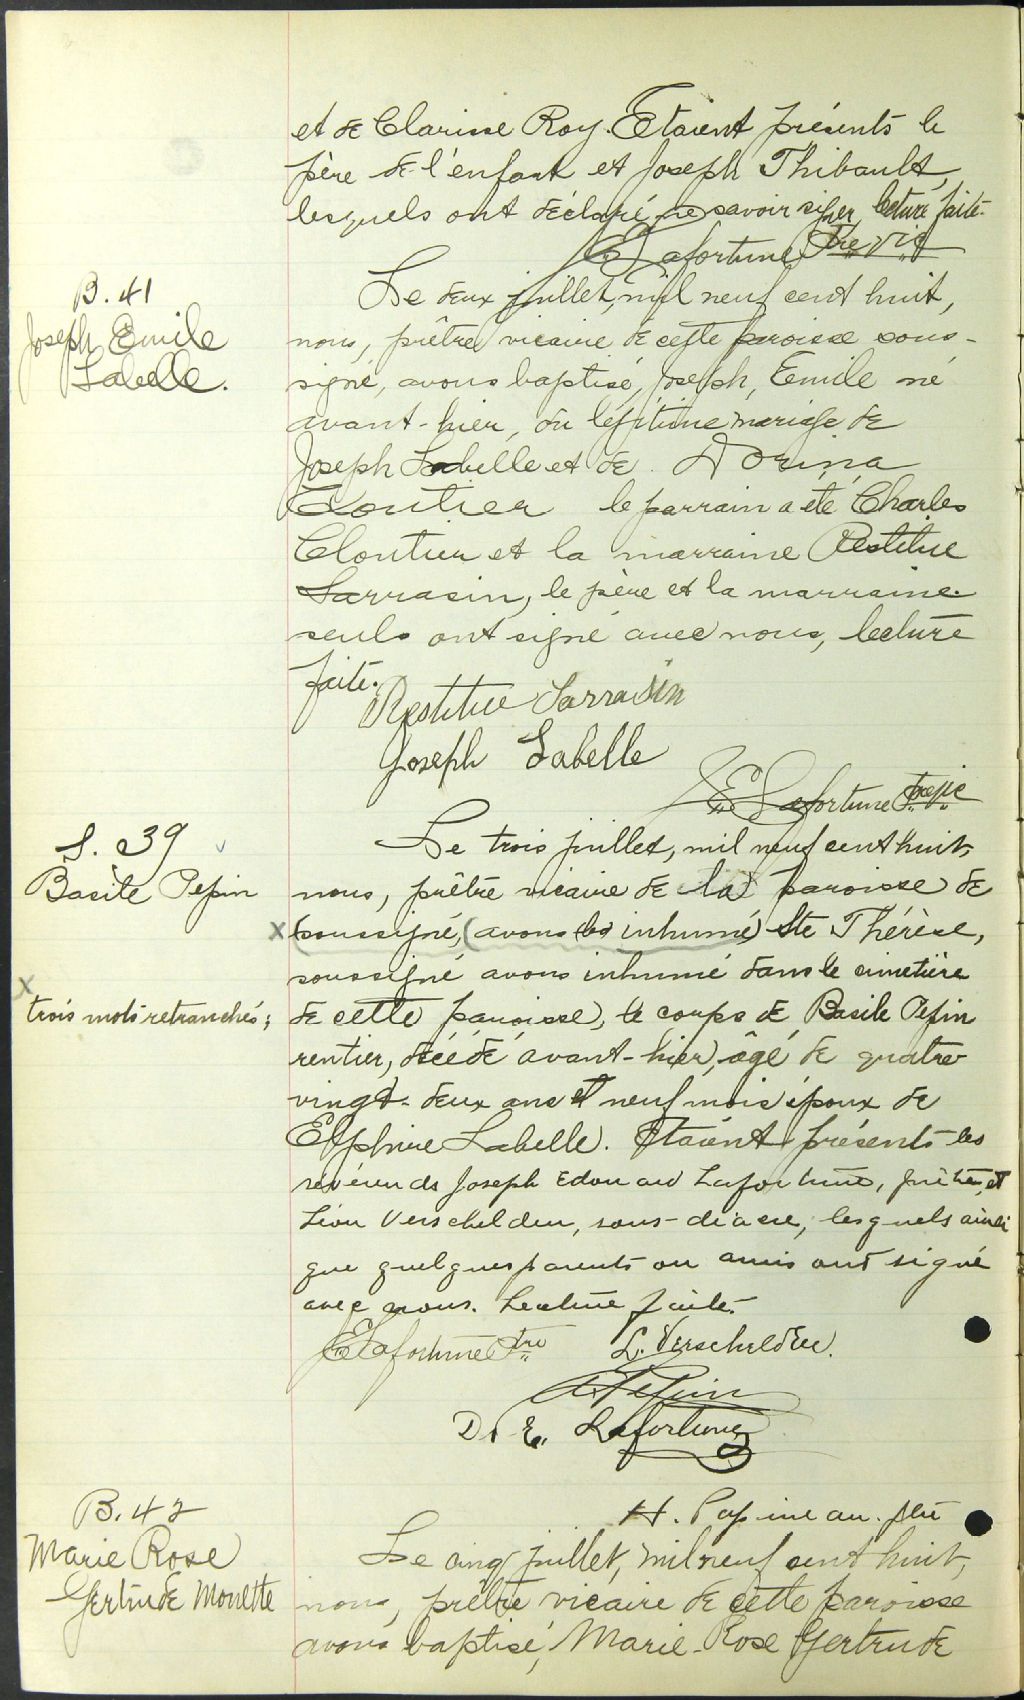 et de Clarisse Roy. Etaient présents le
père de l'enfant et Joseph Thibault,
lesquels ont déclaré ne savoir signer, lecture faite.
J. E. Lafortune Ptre vic
B. 41
Joseph Emile
Labelle.
Le deux juillet, mil neuf cent huit,
nous, prêtre vicaire de cette paroisse sous-
signé, avons baptisé, Joseph, Emile né
avant-hier, du légitime mariage de
Joseph Labelle et de Dorina
Cloutier le parrain a été Charles
Cloutier et la marraine Restitue
Sarrasin, le père et la marraine
seuls ont signé avec nous, lecture
faite.
Restitue Sarrasin
Joseph Labelle
J. E. Lafortune Ptre vic
S. 39
Basile Pepin
Le trois juillet, mil neuf cent huit,
nous, prêtre vicaire de la paroisse de
x (soussigné, (avons les inhumé) Ste Thérèse,
soussigné avons inhumé dans le cimetière
x
trois mots retranchés;
de cette paroisse, le corps de Basile Pepin
rentier, décédé avant-hier, âgé de quatre
vingt-deux ans et neuf mois époux de
Elphire Labelle. Etaient présents les
révérends Joseph Edouard Lafortune, prêtre, et
Léon Verschelden, sous-diacre, lesquels ainsi
que quelques parents ou amis ont signé
avec nous. Lecture faite.
J. E. Lafortune Ptre L. Verschelden.
Pepin
D. E. Lafortune
H. Papineau. ptre
B. 42
Marie Rose
Gertrude Monette
Le cinq juillet, mil neuf cent huit,
nous, prêtre vicaire de cette paroisse
avons baptisé, Marie-Rose Gertrude